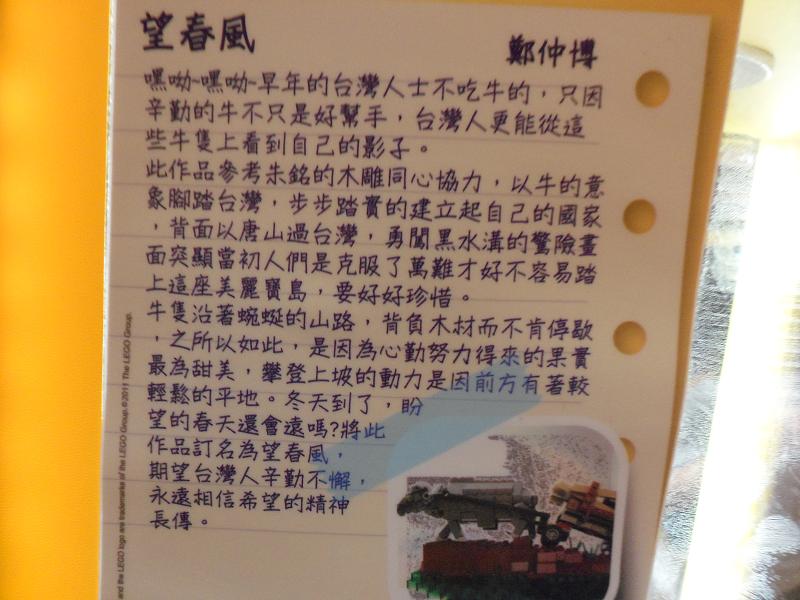 望春風
鄭仲博
嘿呦~嘿呦~早年的台灣人士不吃牛的，只因
辛勤的牛不只是好幫手，台灣人更能從這
些牛隻上看到自己的影子。
此作品參考朱銘的木雕同心協力，以牛的意
象腳踏台灣，步步踏實的建立起自己的國家
，背面以唐山過台灣，勇闖黑水溝的驚險畫
面突顯當初人們是克服了萬難才好不容易踏
上這座美麗寶島，要好好珍惜。
牛隻沿著蜿蜒的山路，背負木材而不肯停歇
，之所以如此，是因為心勤努力得來的果實
最為甜美，攀登上坡的動力是因前方有著較
輕鬆的平地。冬天到了，盼
望的春天還會遠嗎?將此
作品訂名為望春風，
期望台灣人辛勤不懈，
永遠相信希望的精神
長傳。
and the LEGO logo are trademarks of the LEGO Group. ©2011 The LEGO Group.